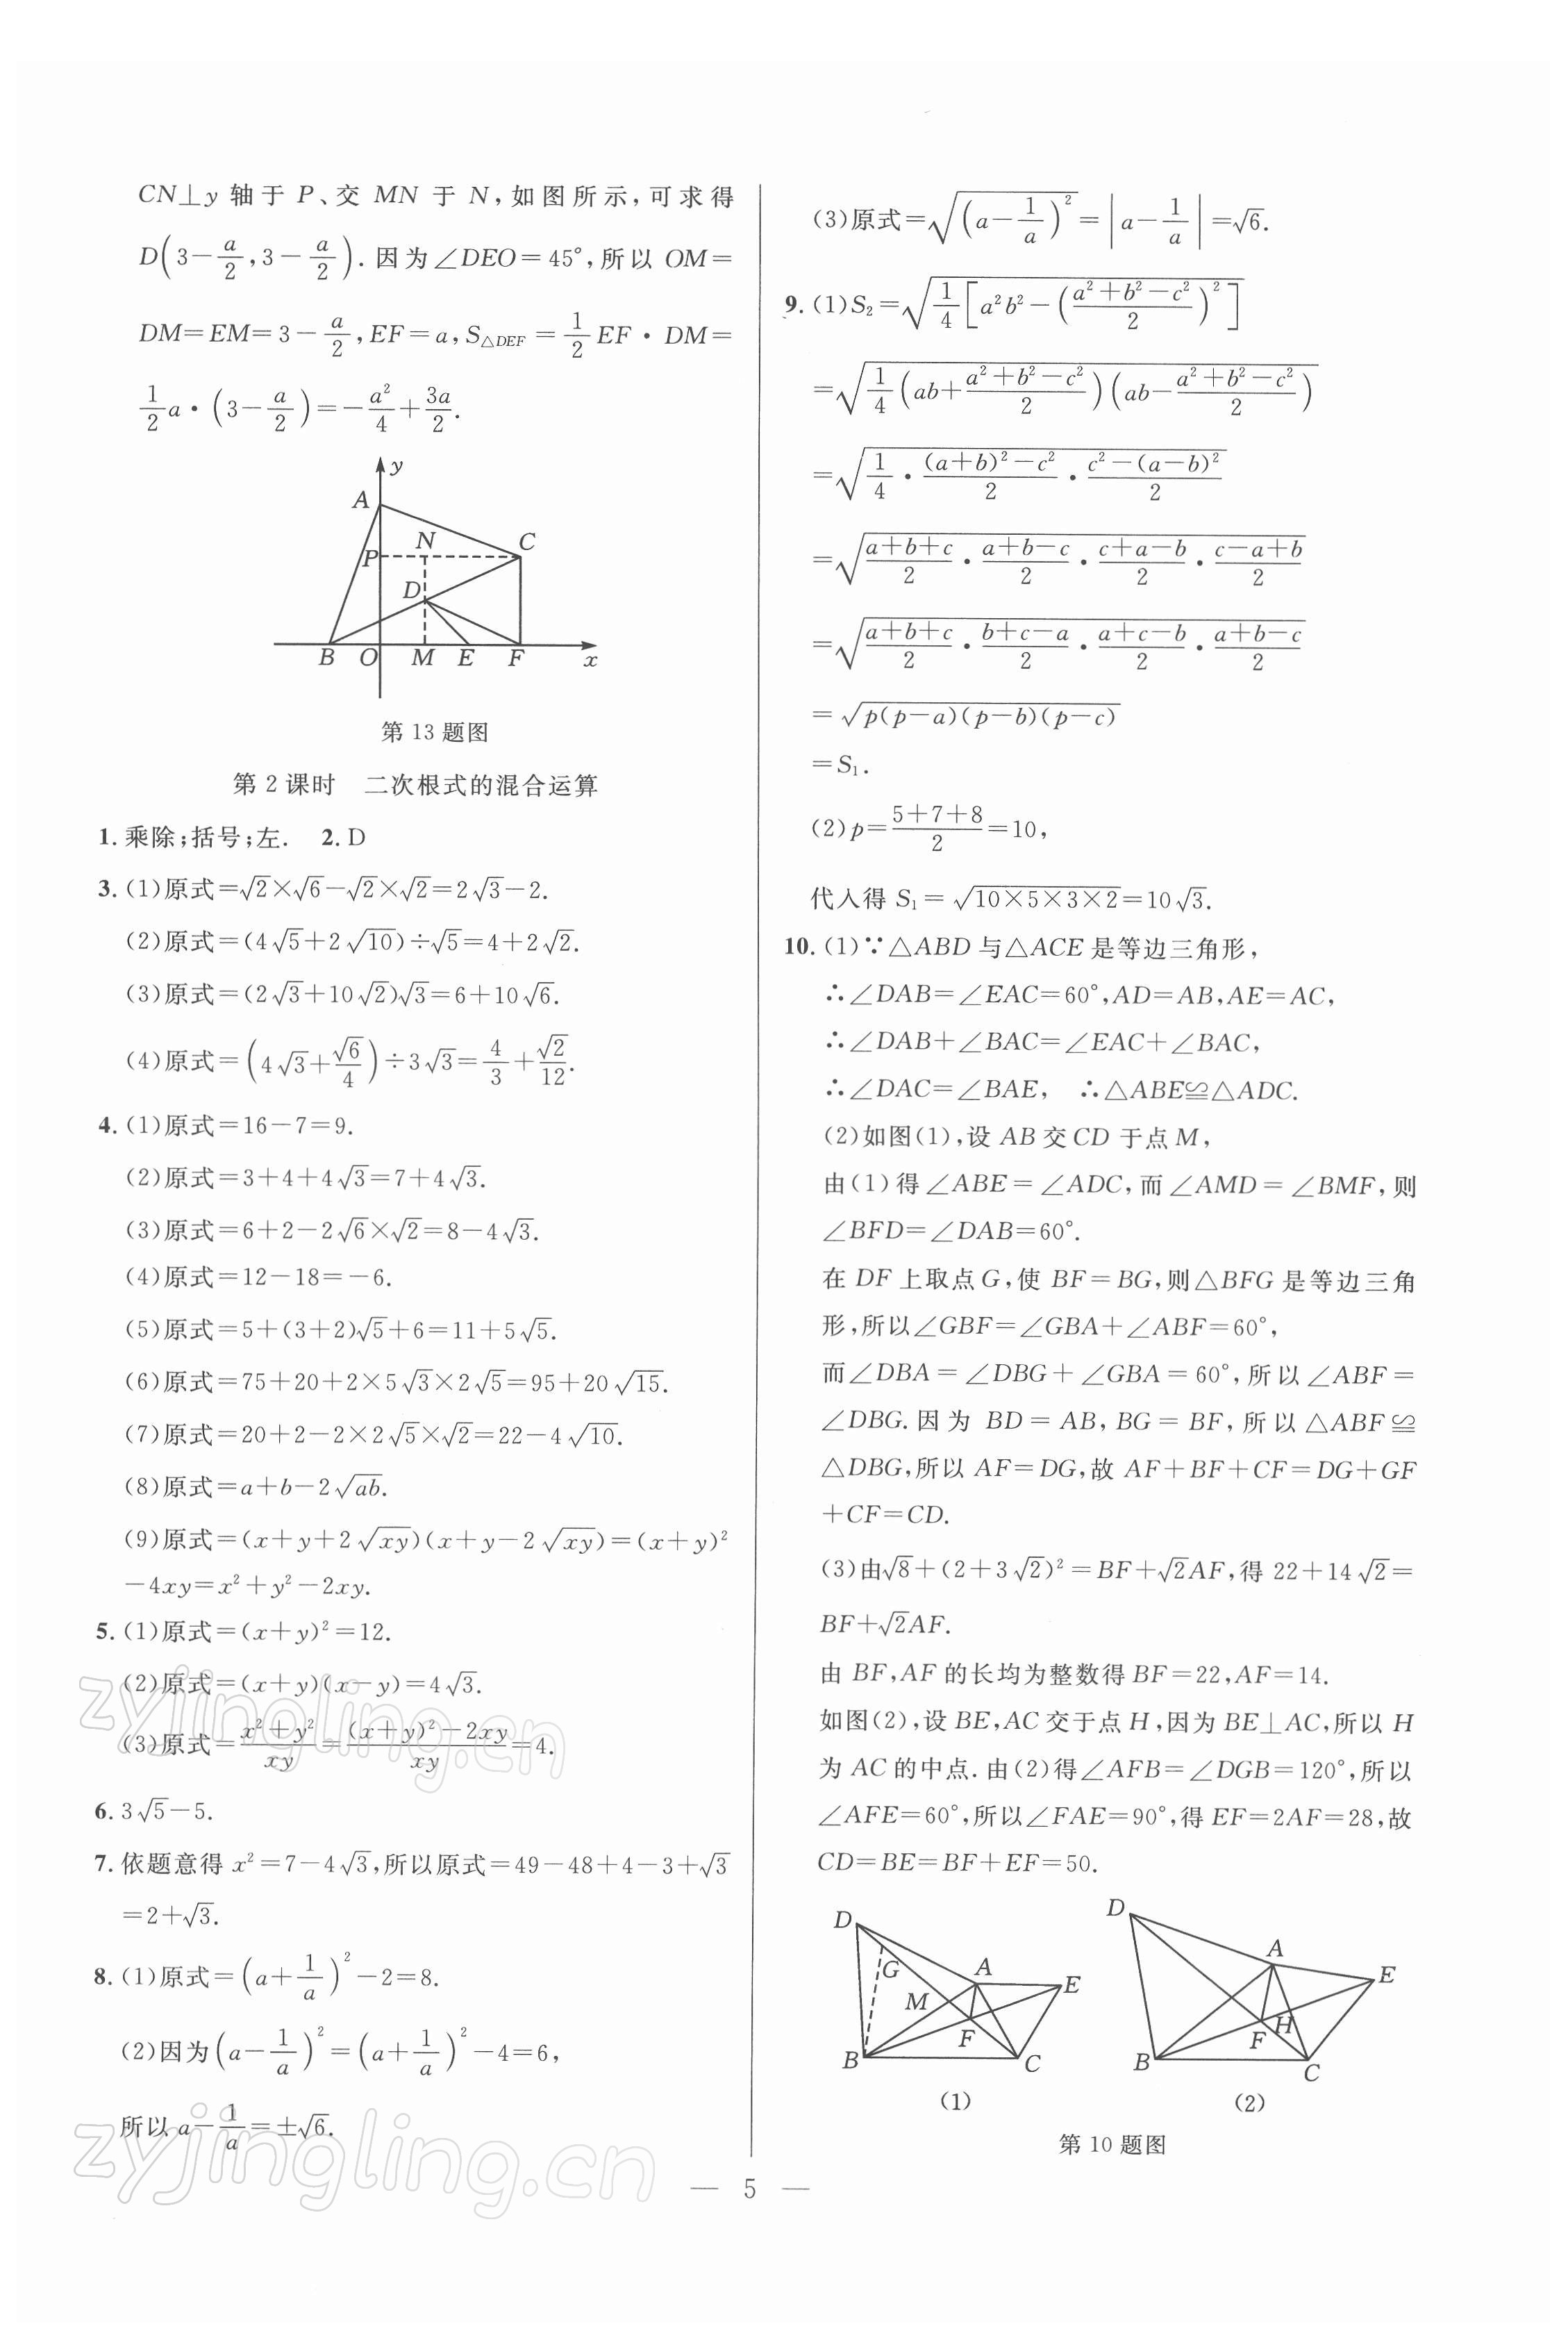 CN⊥y 轴于 P、交 MN 于 N,如图所示,可求得
D(3-a/2,3-a/2).因为∠DEO=45°,所以 OM=
DM=EM=3-a/2,EF=a,S△DEF=1/2EF·DM=
1/2a·(3-a/2)=-a²/4+3a/2.
y
A
N
C
P
D
B O M E F x
第 13 题图
第 2 课时 二次根式的混合运算
1.乘除;括号;左. 2.D
3.(1)原式=√2×√6-√2×√2=2√3-2.
(2)原式=(4√5+2√10)÷√5=4+2√2.
(3)原式=(2√3+10√2)√3=6+10√6.
(4)原式=(4√3+√6/4)÷3√3=4/3+√2/12.
4.(1)原式=16-7=9.
(2)原式=3+4+4√3=7+4√3.
(3)原式=6+2-2√6×√2=8-4√3.
(4)原式=12-18=-6.
(5)原式=5+(3+2)√5+6=11+5√5.
(6)原式=75+20+2×5√3×2√5=95+20√15.
(7)原式=20+2-2×2√5×√2=22-4√10.
(8)原式=a+b-2√ab.
(9)原式=(x+y+2√xy)(x+y-2√xy)=(x+y)²
-4xy=x²+y²-2xy.
5.(1)原式=(x+y)²=12.
(2)原式=(x+y)(x-y)=4√3.
(3)原式=(x²+y²)/xy=((x+y)²-2xy)/xy=4.
zyjingling.cn
6.3√5-5.
7.依题意得 x²=7-4√3,所以原式=49-48+4-3+√3
=2+√3.
8.(1)原式=(a+1/a)²-2=8.
(2)因为(a-1/a)²=(a+1/a)²-4=6,
所以 a-1/a=±√6.
zyjingling.cn
(3)原式=√((a-1/a)²)=|a-1/a|=√6.
9.(1)S₂=√(1/4[a²b²-((a²+b²-c²)/2)²])
=√(1/4(ab+(a²+b²-c²)/2)(ab-(a²+b²-c²)/2))
=√(1/4·((a+b)²-c²)/2·(c²-(a-b)²)/2)
=√((a+b+c)/2·(a+b-c)/2·(c+a-b)/2·(c-a+b)/2)
=√((a+b+c)/2·(b+c-a)/2·(a+c-b)/2·(a+b-c)/2)
=√(p(p-a)(p-b)(p-c))
=S₁.
(2)p=(5+7+8)/2=10,
代入得 S₁=√(10×5×3×2)=10√3.
10.(1)∵△ABD与△ACE是等边三角形,
∴∠DAB=∠EAC=60°,AD=AB,AE=AC,
∴∠DAB+∠BAC=∠EAC+∠BAC,
∴∠DAC=∠BAE, ∴△ABE≌△ADC.
(2)如图(1),设 AB 交 CD 于点 M,
由(1)得∠ABE=∠ADC,而∠AMD=∠BMF,则
∠BFD=∠DAB=60°.
在 DF 上取点 G,使 BF=BG,则△BFG 是等边三角
形,所以∠GBF=∠GBA+∠ABF=60°,
而∠DBA=∠DBG+∠GBA=60°,所以∠ABF=
∠DBG.因为 BD=AB,BG=BF,所以△ABF≌
△DBG,所以 AF=DG,故 AF+BF+CF=DG+GF
+CF=CD.
(3)由√8+(2+3√2)²=BF+√2AF,得 22+14√2=
BF+√2AF.
由 BF,AF 的长均为整数得 BF=22,AF=14.
如图(2),设 BE,AC 交于点 H,因为 BE⊥AC,所以 H
为 AC 的中点.由(2)得∠AFB=∠DGB=120°,所以
∠AFE=60°,所以∠FAE=90°,得 EF=2AF=28,故
CD=BE=BF+EF=50.
D
G A E
M
F
B C
(1)
D
A
E
F H
B C
(2)
第 10 题图
— 5 —